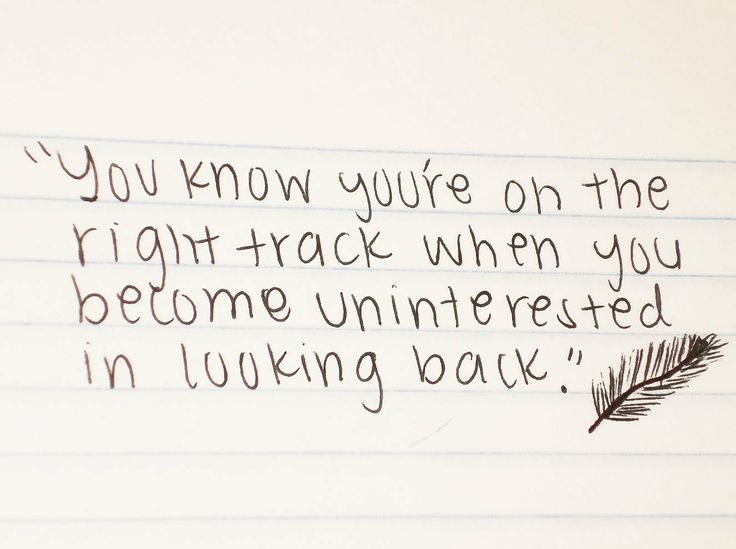 "You know you're on the
right track when you
become uninterested
in looking back."